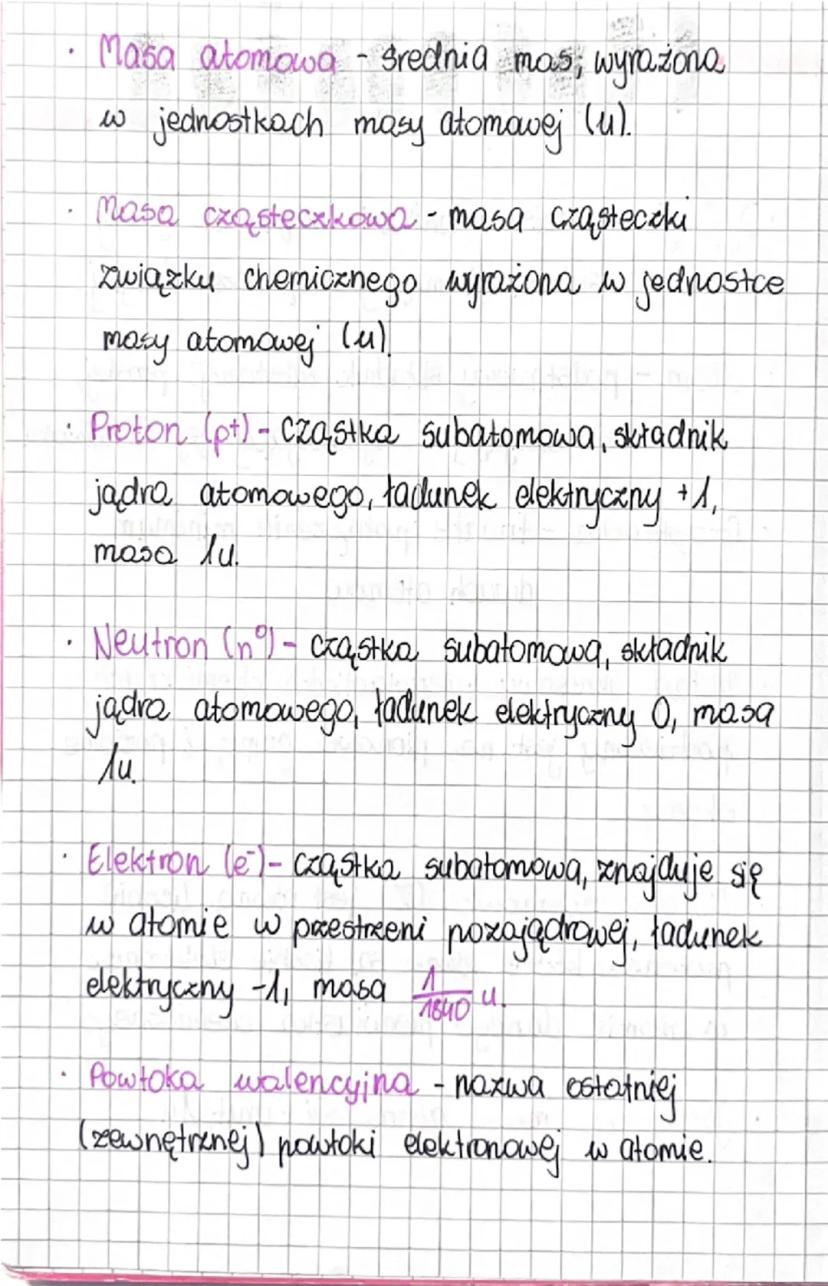 · Masa atomowa - średnia mas, wyrażona
w jednostkach masy atomowej (u).
· Masa cząsteczkowa - masa cząsteczki
związku chemicznego wyrażona w jednostce
masy atomowej (u).
· Proton (p⁺) - cząstka subatomowa, składnik
jądra atomowego, ładunek elektryczny +1,
masa 1u.
· Neutron (n⁰) - cząstka subatomowa, składnik
jądra atomowego, ładunek elektryczny 0, masa
1u.
· Elektron (e⁻) - cząstka subatomowa, znajduje się
w atomie w przestrzeni pozajądrowej, ładunek
elektryczny -1, masa 1/1840 u.
· Powłoka walencyjna - nazwa ostatniej
(zewnętrznej) powłoki elektronowej w atomie.